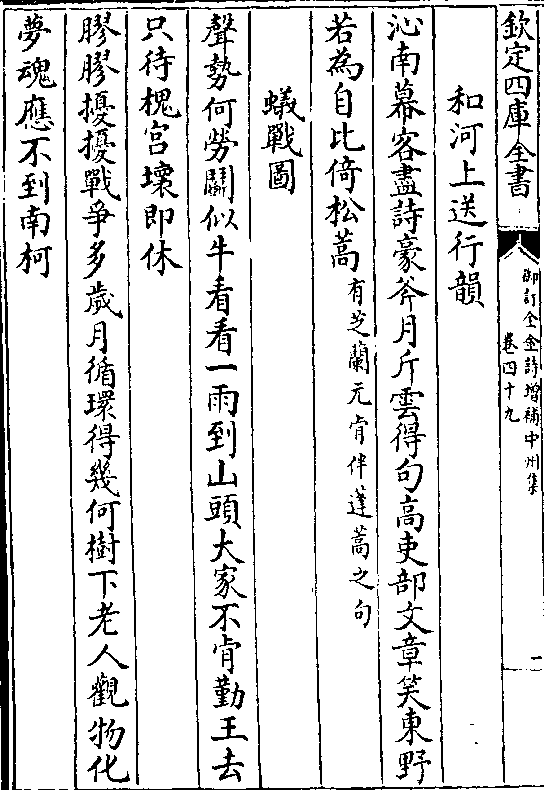 欽定四庫全書
御訂全金詩增補中州集
卷四十九
一
和河上送行韻
沁南幕客盡詩豪斧月斤雲得句高吏部文章笑東野
若為自比倚松蒿有芝蘭元肯伴蓬蒿之句
蟻戰圖
聲勢何勞鬭似牛看看一雨到山頭大家不肯勤王去
只待槐宮壞即休
膠膠擾擾戰爭多歲月循環得幾何樹下老人觀物化
夢魂應不到南柯